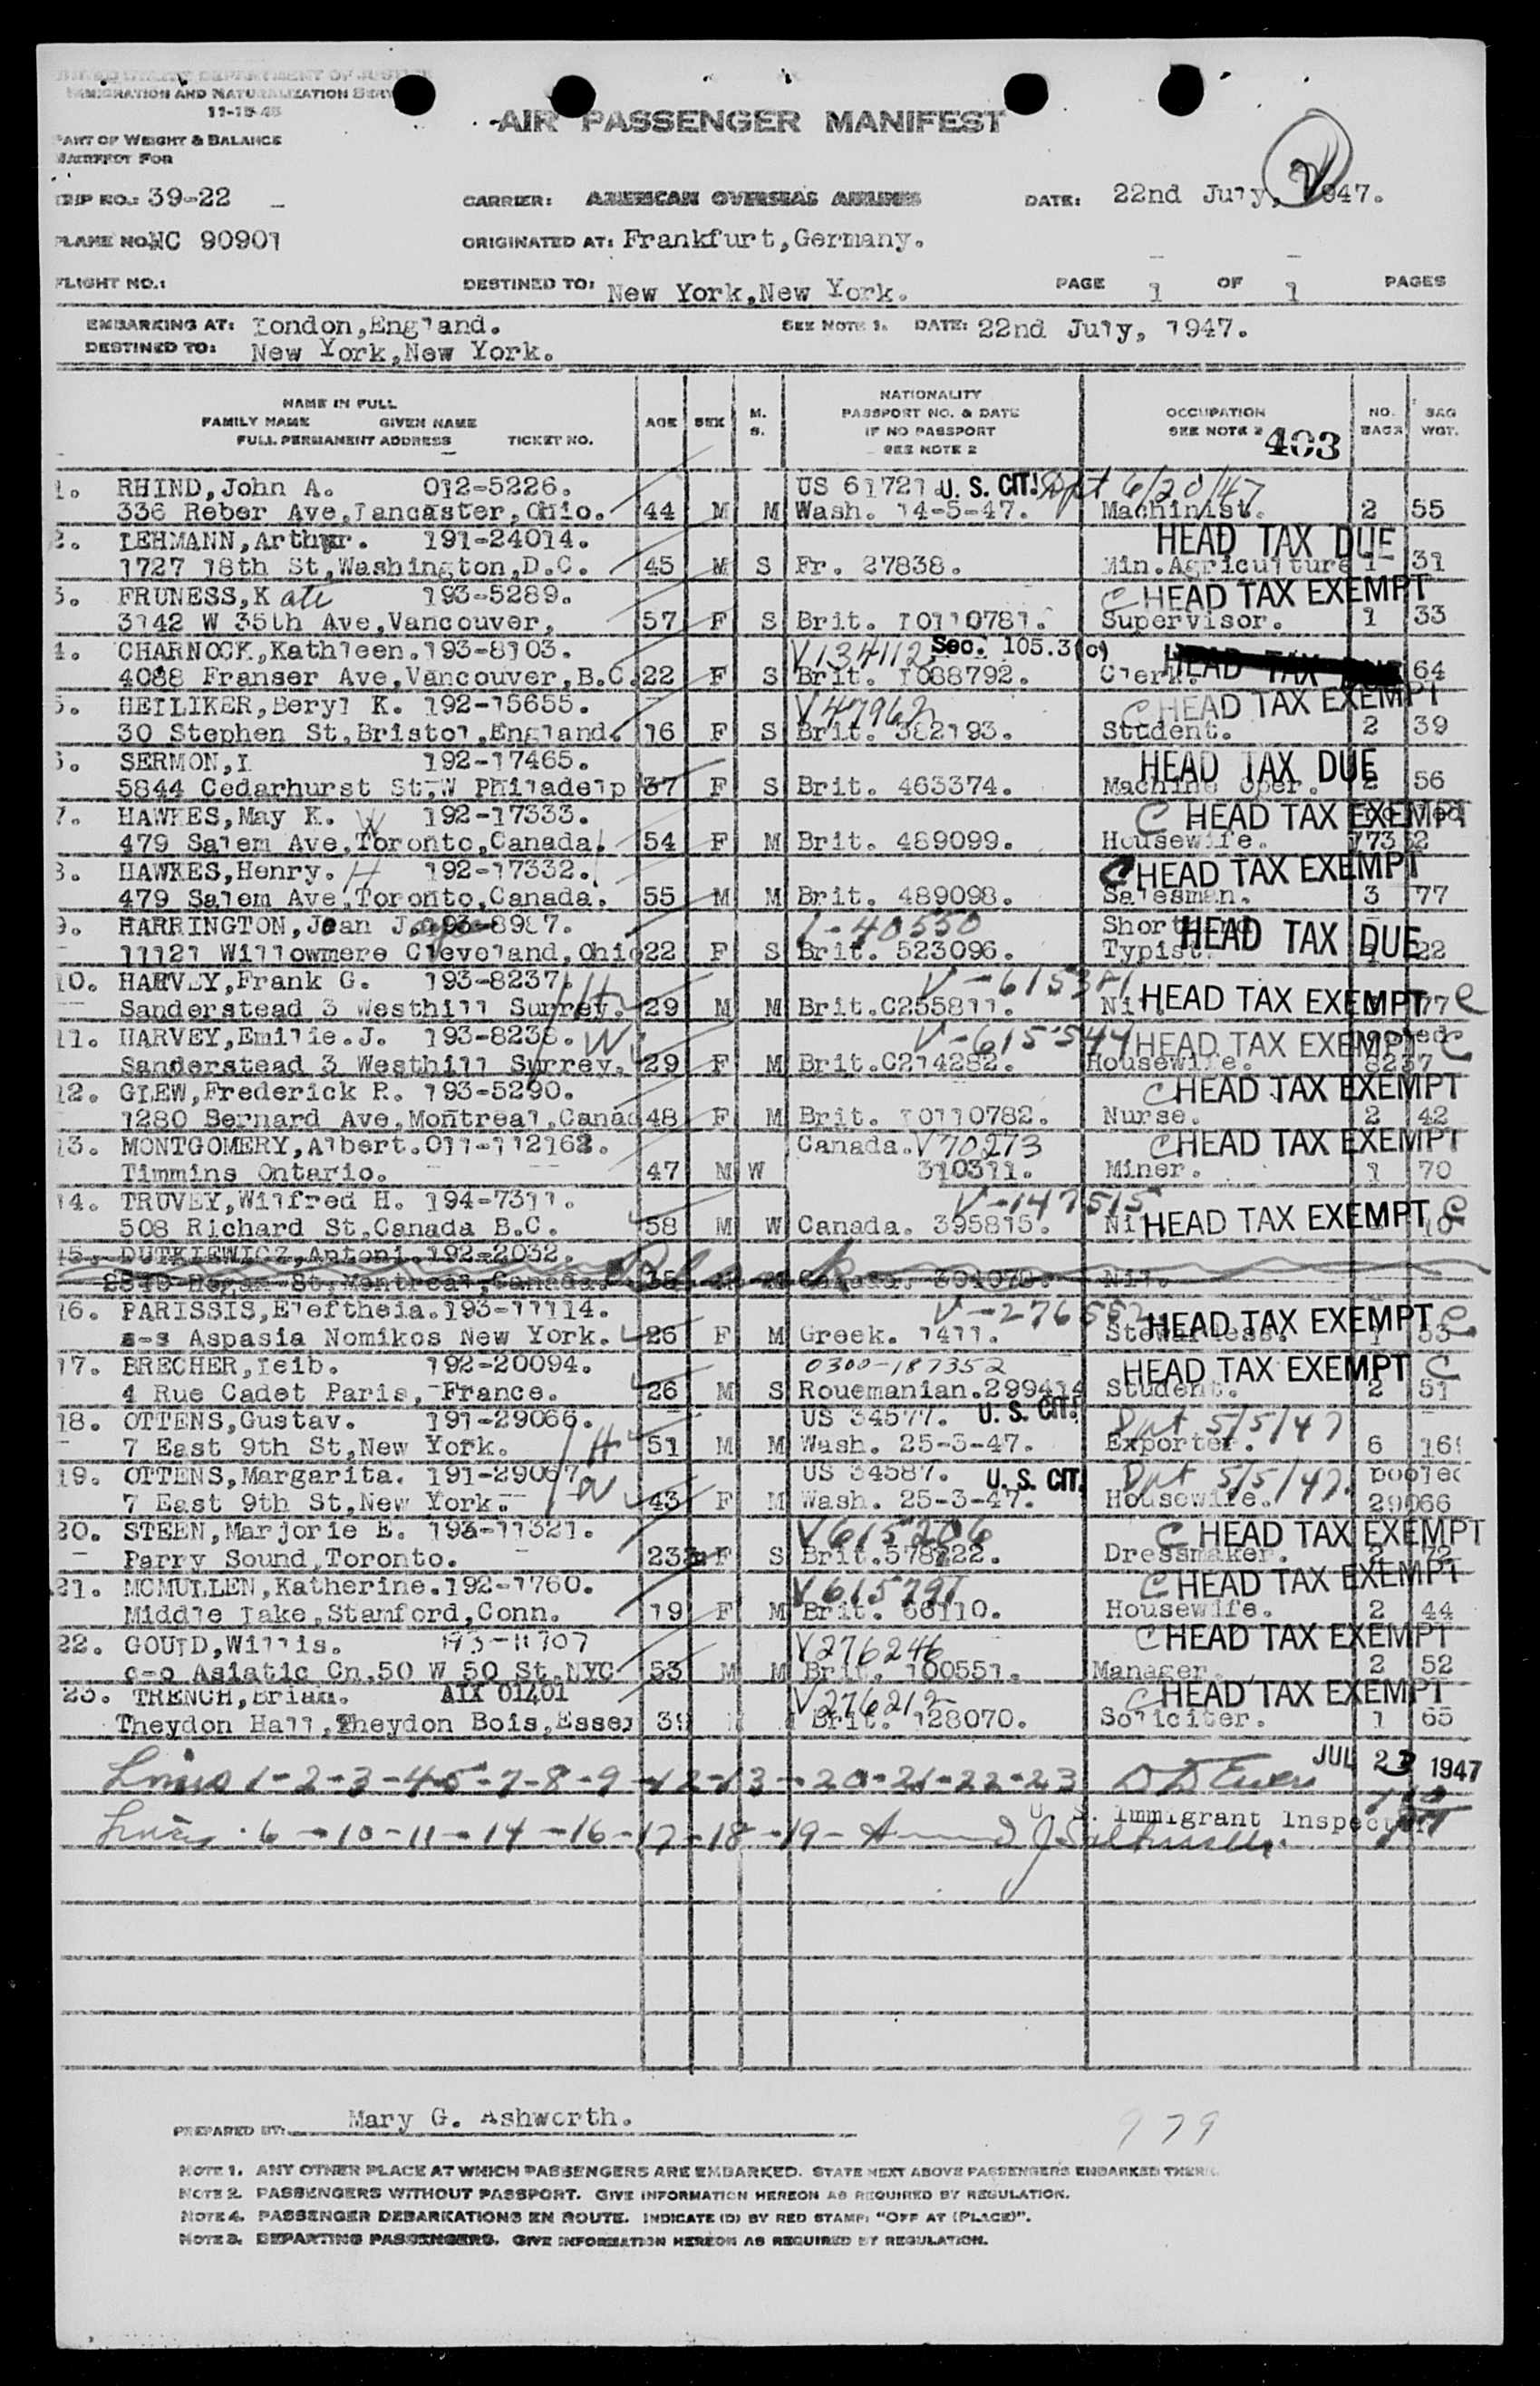 UNITED STATES DEPARTMENT OF JUSTICE
IMMIGRATION AND NATURALIZATION SERV
11-15-45
AIR PASSENGER MANIFEST
PART OF WEIGHT & BALANCE
MANIFEST FOR
TRIP NO.: 39-22 CARRIER: AMERICAN OVERSEAS AIRLINES DATE: 22nd July, 1947.
PLANE NO. NC 90901 ORIGINATED AT: Frankfurt, Germany.
FLIGHT NO.: DESTINED TO: New York, New York. PAGE 1 OF 1 PAGES
EMBARKING AT: London, England. SEE NOTE 1. DATE: 22nd July, 1947.
DESTINED TO: New York, New York.
NAME IN FULL
FAMILY NAME GIVEN NAME
FULL PERMANENT ADDRESS TICKET NO. AGE SEX M. S. NATIONALITY PASSPORT NO. & DATE IF NO PASSPORT SEE NOTE 2 OCCUPATION SEE NOTE 2 403 NO. BAGS BAG WGT.
1. RHIND, John A. 012-5226. US 61721 U. S. CIT. Dpt 6/20/47
336 Reber Ave, Lancaster, Ohio. 44 M M Wash. 14-5-47. Machinist. 2 55
2. LEHMANN, Arthur. 191-24014. HEAD TAX DUE
1727 18th St, Washington, D.C. 45 M S Fr. 27838. Min. Agriculture 1 31
3. FRUNESS, Kate 193-5289. C HEAD TAX EXEMPT
3142 W 35th Ave, Vancouver, 57 F S Brit. I0110781. Supervisor. 1 33
4. CHARNOCK, Kathleen. 193-8103. V134112 Sec. 105.3(c) HEAD TAX DUE
4088 Franser Ave, Vancouver, B.C. 22 F S Brit. I088792. Clerk. 64
5. HEILIKER, Beryl K. 192-15655. V47962 C HEAD TAX EXEMPT
30 Stephen St, Bristol, England. 16 F S Brit. 382193. Student. 2 39
6. SERMON, I 192-17465. HEAD TAX DUE
5844 Cedarhurst St, W Philadelp 37 F S Brit. 463374. Machine Oper. 2 56
7. HAWKES, May K. W 192-17333. C HEAD TAX EXEMPT
479 Salem Ave, Toronto, Canada. 54 F M Brit. 489099. Housewife.
8. HAWKES, Henry. H 192-17332. C HEAD TAX EXEMPT
479 Salem Ave, Toronto, Canada. 55 M M Brit. 489098. Salesman. 3 77
9. HARRINGTON, Jean J. 193-8987. I-40550 HEAD TAX DUE
11121 Willowmere Cleveland, Ohio 22 F S Brit. 523096. Typist. 22
10. HARVEY, Frank G. 193-8237. H V-615381 HEAD TAX EXEMPT C
Sanderstead 3 Westhill Surrey. 29 M M Brit. C255811. Nil. 77
11. HARVEY, Emilie. J. 193-8238. W V-615544 HEAD TAX EXEMPT C
Sanderstead 3 Westhill Surrey. 29 F M Brit. C214282. Housewife. 8237
12. GLEW, Frederick R. 193-5290. C HEAD TAX EXEMPT
1280 Bernard Ave, Montreal, Canad 48 F M Brit. I0110782. Nurse. 2 42
13. MONTGOMERY, Albert. 011-112162. Canada. V70273 C HEAD TAX EXEMPT
Timmins Ontario. 47 M W 310311. Miner. 1 70
14. TRUVEY, Wilfred H. 194-7311. V-147515 HEAD TAX EXEMPT C
508 Richard St, Canada B.C. 58 M W Canada. 395815. Nil.
15. DUTKIEWICZ, Antoni. 192-2032.
St, Montreal, Canada. 35 Nil.
16. PARISSIS, Eleftheia. 193-11114. V-276552 HEAD TAX EXEMPT C
s-s Aspasia Nomikos New York. 26 F M Greek. 1411. Stewardess. 1 53
17. BRECHER, Leib. 192-20094. 0300-187352 HEAD TAX EXEMPT C
4 Rue Cadet Paris, France. 26 M S Rouemanian. 299414 Student. 2 51
18. OTTENS, Gustav. 191-29066. US 34577. U. S. CIT. Dpt 5/5/47
7 East 9th St, New York. H 51 M M Wash. 25-3-47. Exporter. 6 16
19. OTTENS, Margarita. 191-29067 US 34587. U. S. CIT. Dpt 5/5/47. pooled
7 East 9th St, New York. W 43 F M Wash. 25-3-47. Housewife. 29066
20. STEEN, Marjorie E. 193-11321. V615206 C HEAD TAX EXEMPT
Parry Sound, Toronto. 23 F S Brit. 578222. Dressmaker. 2 72
21. MCMULLEN, Katherine. 192-1760. V615791 C HEAD TAX EXEMPT
Middle Lake, Stamford, Conn. 19 F M Brit. 66110. Housewife. 2 44
22. GOULD, Willis. 193-11707 V276246 C HEAD TAX EXEMPT
c-o Asiatic Cn. 50 W 50 St. NYC. 53 M M Brit. 100551. Manager. 2 52
23. TRENCH, Brian. AIX 01401 V276212 C HEAD TAX EXEMPT
Theydon Hall, Theydon Bois, Essex 39 Brit. 128070. Soliciter. 1 65
JUL 23 1947
Lines 1-2-3-4-5-7-8-9-12-13-20-21-22-23
U. S. Immigrant Inspector
Lines 6-10-11-14-16-17-18-19-
PREPARED BY: Mary G. Ashworth.
979
NOTE 1. ANY OTHER PLACE AT WHICH PASSENGERS ARE EMBARKED. STATE NEXT ABOVE PASSENGERS EMBARKED THERE.
NOTE 2. PASSENGERS WITHOUT PASSPORT. GIVE INFORMATION HEREON AS REQUIRED BY REGULATION.
NOTE 4. PASSENGER DEBARKATIONS EN ROUTE. INDICATE (D) BY RED STAMP: "OFF AT (PLACE)".
NOTE 3. DEPARTING PASSENGERS. GIVE INFORMATION HEREON AS REQUIRED BY REGULATION.